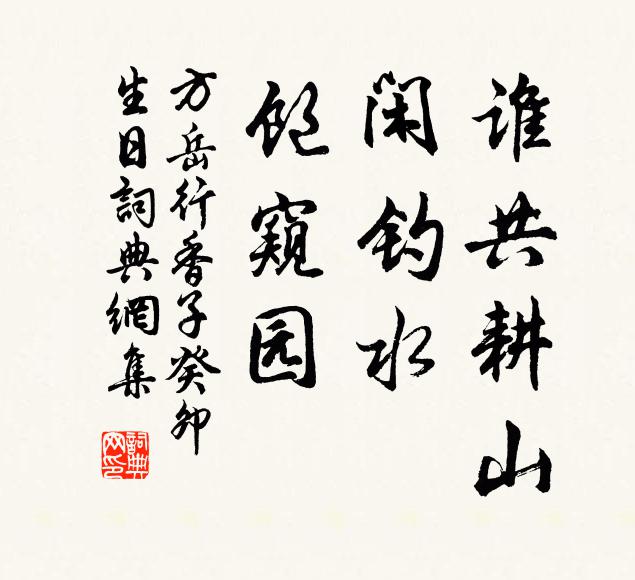 谁共耕山
闲钓水
饱窺园
方岳行香子癸卯
生日詞典網集
詞典
网印